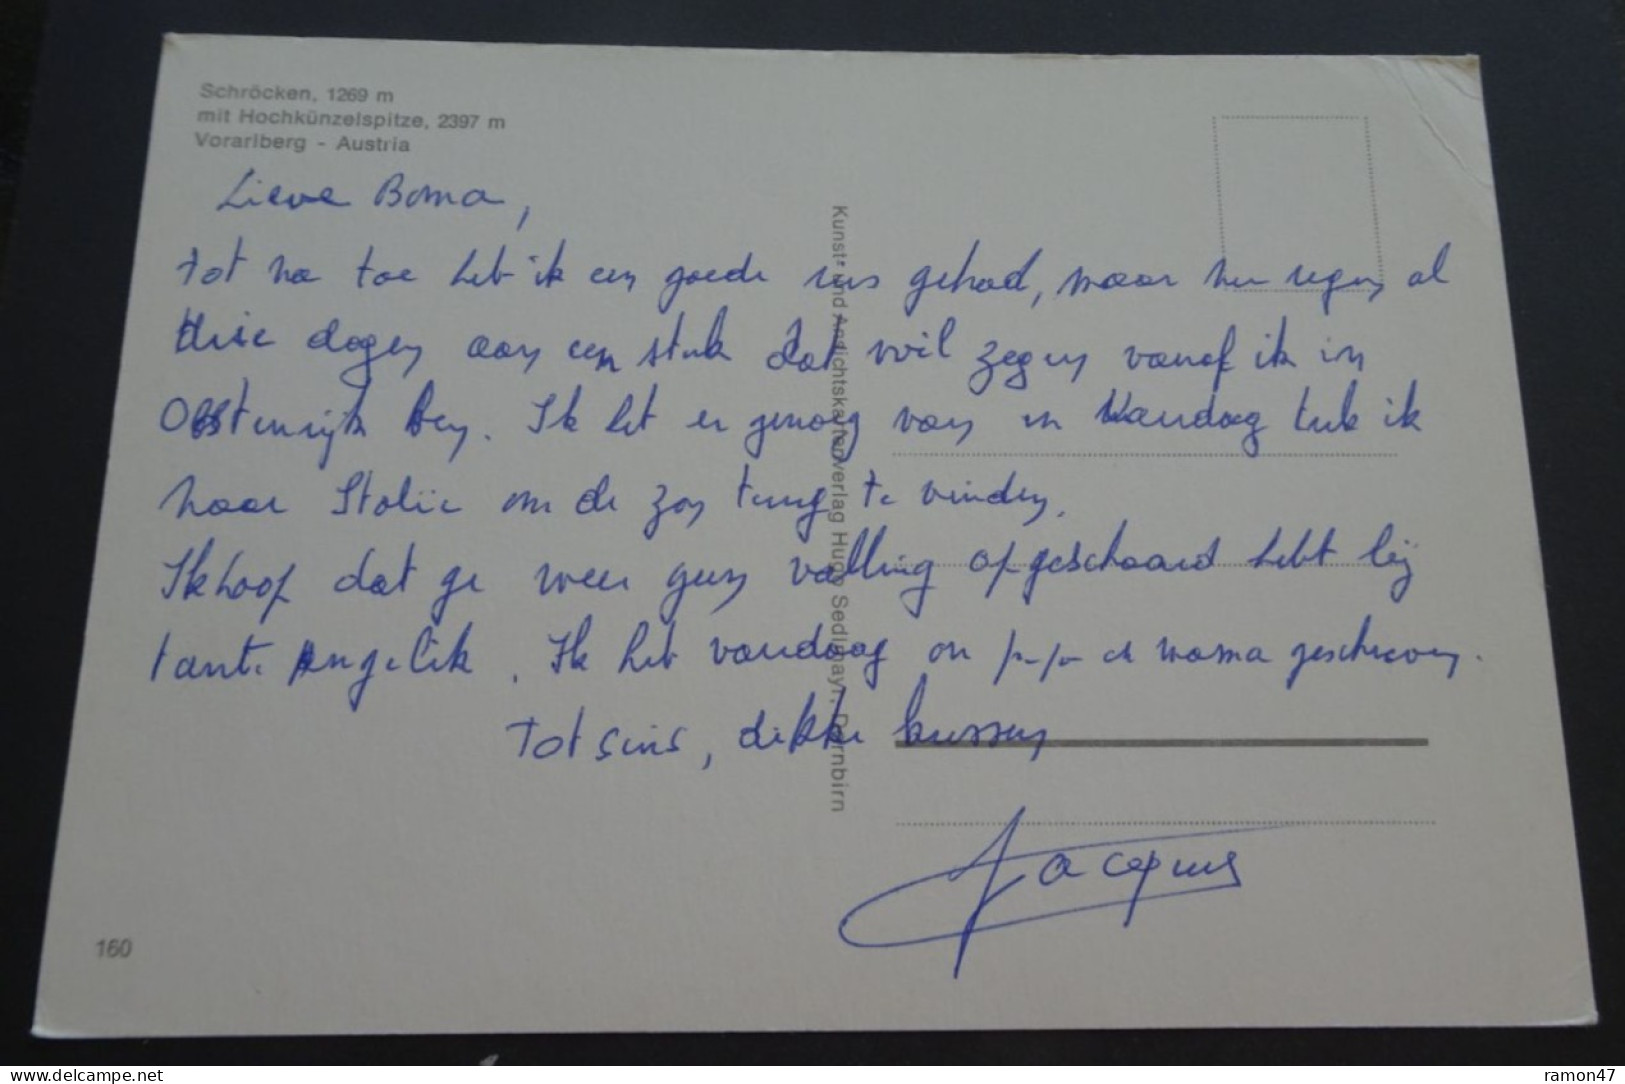 Schröcken, 1269 m
mit Hochkünzelspitze, 2397 m
Vorarlberg - Austria
Lieve Boma,
tot na toe heb ik een goede reis gehad, maar hier regen al
drie dagen aan een stuk dat wil zegen vanaf ik in
Oostenrijk ben. Ik heb er genoeg van en vandaag trek ik
naar Italië om de zon terug te vinden.
Ik hoop dat ge weer geen valling opgeschaard hebt bij
tante Angelik. Ik heb vandaag on pa-pa en mama geschreven.
Tot sins, dikke kussen
Jacques
Kunst- und Ansichtskartenverlag Hugo Sedlmayr, Dornbirn
160
delcampe.net
ramon47